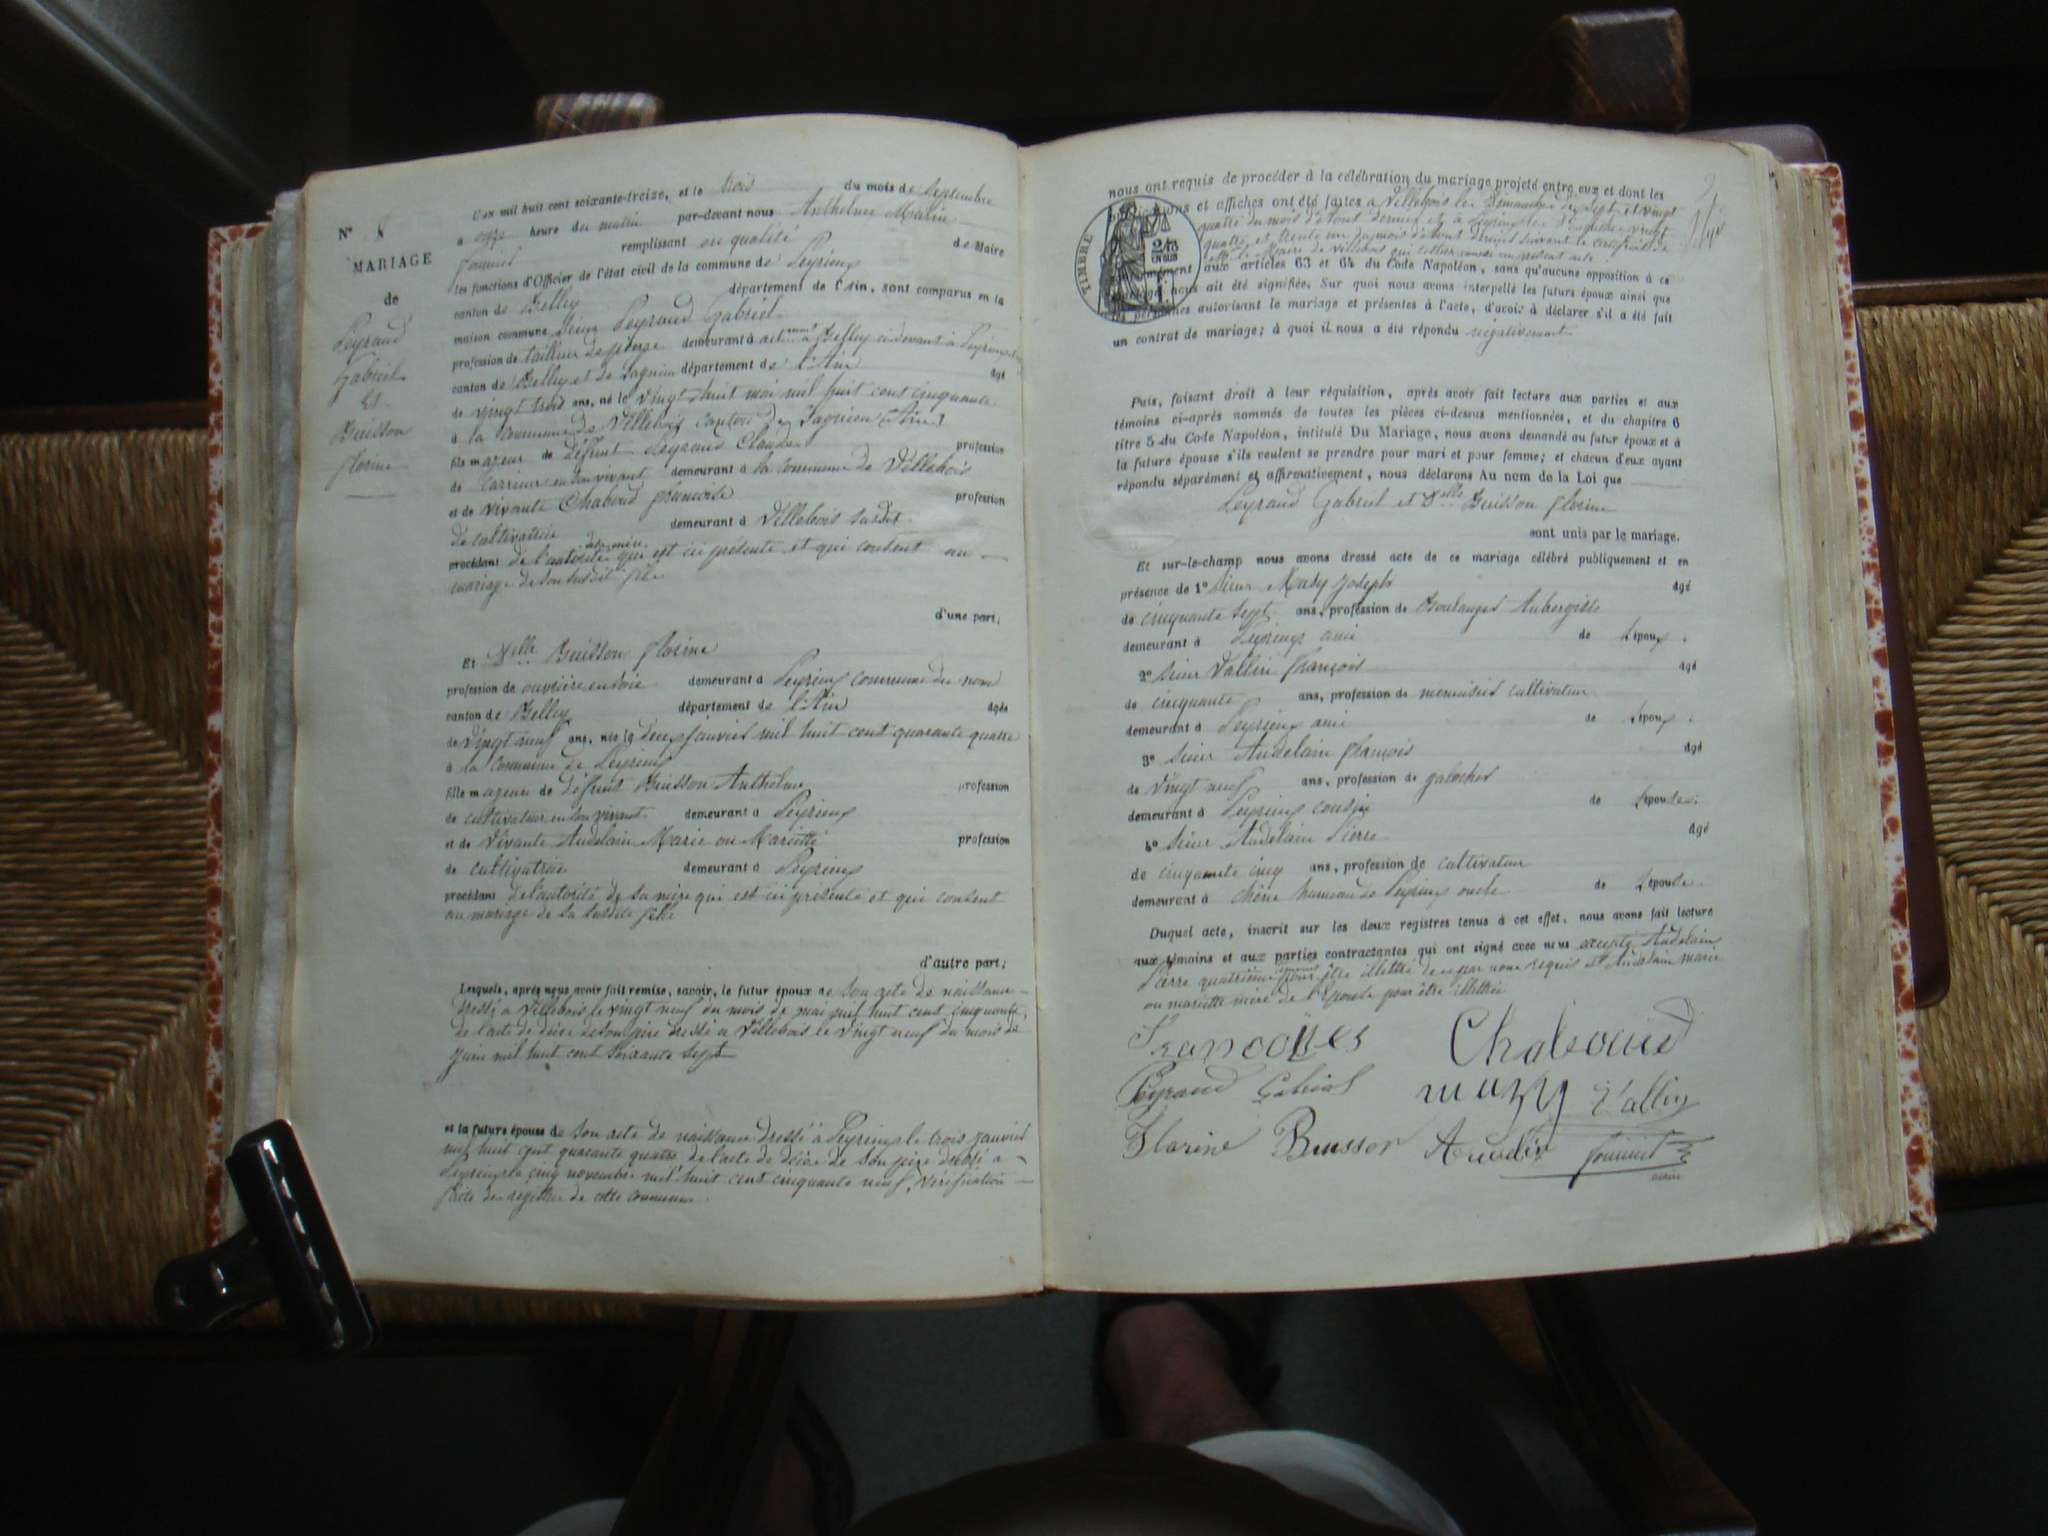 N° 8
MARIAGE
de
Peyraud
Gabriel
Et
Buisson
florine
L'an mil huit cent soixante-treize, et le trois du mois de Septembre
à onze heure du matin par-devant nous Anthelme Marin
remplissant en qualité de Maire
les fonctions d'Officier de l'état civil de la commune de Peyrieu
canton de Belley département de l'Ain, sont comparus en la
maison commune Sieur Peyraud Gabriel
profession de tailleur de pierre demeurant à Belley ci devant à Peyrieu
canton de Belley et de Lagnieu département de l'Ain âgé
de vingt trois ans, né le vingt huit mai mil huit cent cinquante
à la commune de Villebois canton de Lagnieu (Ain)
fils majeur de défunt Peyraud Claude profession
de carrieur en son vivant demeurant à la commune de Villebois
et de vivante Chaboud françoise profession
de cultivatrice demeurant à Villebois susdit
procédant de l'autorité de sa mère qui est ici présente et qui consent au
mariage de son susdit fils
d'une part;
Et Delle Buisson florine
profession de ouvrière en soie demeurant à Peyrieu commune du nom
canton de Belley département de l'Ain âgée
de vingt neuf ans, née le deux janvier mil huit cent quarante quatre
à la commune de Peyrieu
fille majeure de défunt Buisson Anthelme profession
de cultivateur en son vivant demeurant à Peyrieu
et de vivante Audelain Marie ou Mariette profession
de cultivatrice demeurant à Peyrieu
procédant de l'autorité de sa mère qui est ici présente et qui consent
au mariage de sa susdite fille
d'autre part;
Lesquels, après nous avoir fait remise, savoir, le futur époux de son acte de naissance
dressé à Villebois le vingt neuf du mois de mai mil huit cent cinquante,
de l'acte de décès de son père dressé à Villebois le vingt neuf du mois de
juin mil huit cent soixante sept
et la future épouse de son acte de naissance dressé à Peyrieu le trois janvier
mil huit cent quarante quatre de l'acte de décès de son père dressé à
Peyrieu le cinq novembre mil huit cent cinquante neuf, vérification
faite des registres de cette commune.
nous ont requis de procéder à la célébration du mariage projeté entre eux et dont les
et affiches ont été faites à Villebois les Dimanches dix sept et vingt
quatre du mois d'août dernier et à Peyrieu les Dimanches vingt
quatre et trente un du mois d'août dernier suivant le certificat de
Mr le Maire de Villebois
TIMBRE
aux articles 63 et 64 du Code Napoléon, sans qu'aucune opposition à ce
nous ait été signifiée. Sur quoi nous avons interpellé les futurs époux ainsi que
les personnes autorisant le mariage et présentes à l'acte, d'avoir à déclarer s'il a été fait
un contrat de mariage; à quoi il nous a été répondu négativement
Puis, faisant droit à leur réquisition, après avoir fait lecture aux parties et aux
témoins ci-après nommés de toutes les pièces ci-dessus mentionnées, et du chapitre 6
titre 5 du Code Napoléon, intitulé Du Mariage, nous avons demandé au futur époux et à
la future épouse s'ils veulent se prendre pour mari et pour femme; et chacun d'eux ayant
répondu séparément et affirmativement, nous déclarons Au nom de la Loi que
Peyraud Gabriel et Delle Buisson florine
sont unis par le mariage.
Et sur-le-champ nous avons dressé acte de ce mariage célébré publiquement et en
présence de 1° Sieur Mazy Joseph âgé
de cinquante sept ans, profession de Boulanger Aubergiste
demeurant à Peyrieu ami de l'époux.
2° Sieur Vallin françois âgé
de cinquante ans, profession de menuisier cultivateur
demeurant à Peyrieu ami de l'époux.
3° Sieur Audelain françois âgé
de vingt neuf ans, profession de galocher
demeurant à Peyrieu cousin de l'épouse.
4° Sieur Audelain Pierre âgé
de cinquante cinq ans, profession de cultivateur
demeurant à Chêne hameau de Peyrieu oncle de l'épouse.
Duquel acte, inscrit sur les deux registres tenus à cet effet, nous avons fait lecture
aux témoins et aux parties contractantes qui ont signé avec nous excepté Audelain
Pierre quatrième témoin pour être illettré de ce par nous requis et Audelain marie
ou mariette mère de l'épouse pour être illettrée
Chaboud
Peyraud Gabriel mazy Vallin
Florine Buisson